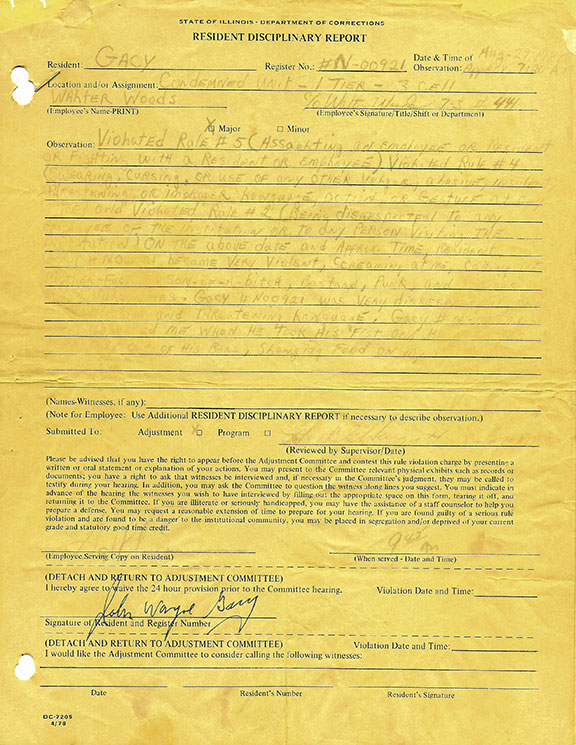 STATE OF ILLINOIS - DEPARTMENT OF CORRECTIONS
RESIDENT DISCIPLINARY REPORT
Resident: GACY Register No.: #N-00921 Date & Time of Observation: Aug. 7:30 A
Location and/or Assignment: CONDEMNED UNIT - 1 TIER - 3 CELL
WALTER WOODS 7-3 # 441
(Employee's Name-PRINT) (Employee's Signature/Title/Shift or Department)
X Major Minor
Observation: Violated Rule #5 (Assaulting an employee or resident
or fighting with a resident or employee) Violated Rule #4
(Swearing, cursing, or use of any other abusive
threatening or improper language or gesture
and violated Rule #2 (Being disrespectful to any
of the institution or to any person visiting the
institution) on the above date and approx. time, resident
became very violent, screaming at me,
son-of-a-bitch, bastard, punk, and
Gacy #N00921 was very disrespectful
and threatening language. Gacy #N-
me when he took his fist and
of his food on
(Names-Witnesses, if any):
(Note for Employee: Use Additional RESIDENT DISCIPLINARY REPORT if necessary to describe observation.)
Submitted To: Adjustment X Program
(Reviewed by Supervisor/Date)
Please be advised that you have the right to appear before the Adjustment Committee and contest this rule violation charge by presenting a
written or oral statement or explanation of your actions. You may present to the Committee relevant physical exhibits such as records or
documents; you have a right to ask that witnesses be interviewed and, if necessary in the Committee's judgment, they may be called to
testify during your hearing. In addition, you may ask the Committee to question the witness along lines you suggest. You must indicate in
advance of the hearing the witnesses you wish to have interviewed by filling out the appropriate space on this form, tearing it off, and
returning it to the Committee. If you are illiterate or seriously handicapped, you may have the assistance of a staff counselor to help you
prepare a defense. You may request a reasonable extension of time to prepare for your hearing. If you are found guilty of a serious rule
violation and are found to be a danger to the institutional community, you may be placed in segregation and/or deprived of your current
grade and statutory good time credit.
(Employee Serving Copy on Resident) (When served - Date and Time)
(DETACH AND RETURN TO ADJUSTMENT COMMITTEE)
I hereby agree to waive the 24 hour provision prior to the Committee hearing. Violation Date and Time:
John Wayne Gacy
Signature of Resident and Register Number
(DETACH AND RETURN TO ADJUSTMENT COMMITTEE) Violation Date and Time:
I would like the Adjustment Committee to consider calling the following witnesses:
Date Resident's Number Resident's Signature
DC-7205
4/78